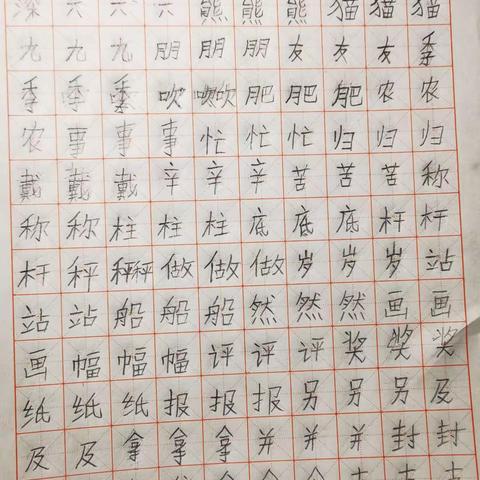 深六六六熊熊熊猫猫猫
九九九朋朋朋友友友季
季季季吹吹吹肥肥肥农农
农事事事忙忙忙归归归
戴戴戴辛辛辛苦苦苦称
称称柱柱柱底底底杆杆
杆秤秤秤做做做岁岁岁站
站站船船船然然然画画
画幅幅幅评评评奖奖奖
纸纸纸报报报另另另及
及及拿拿拿并并并封封